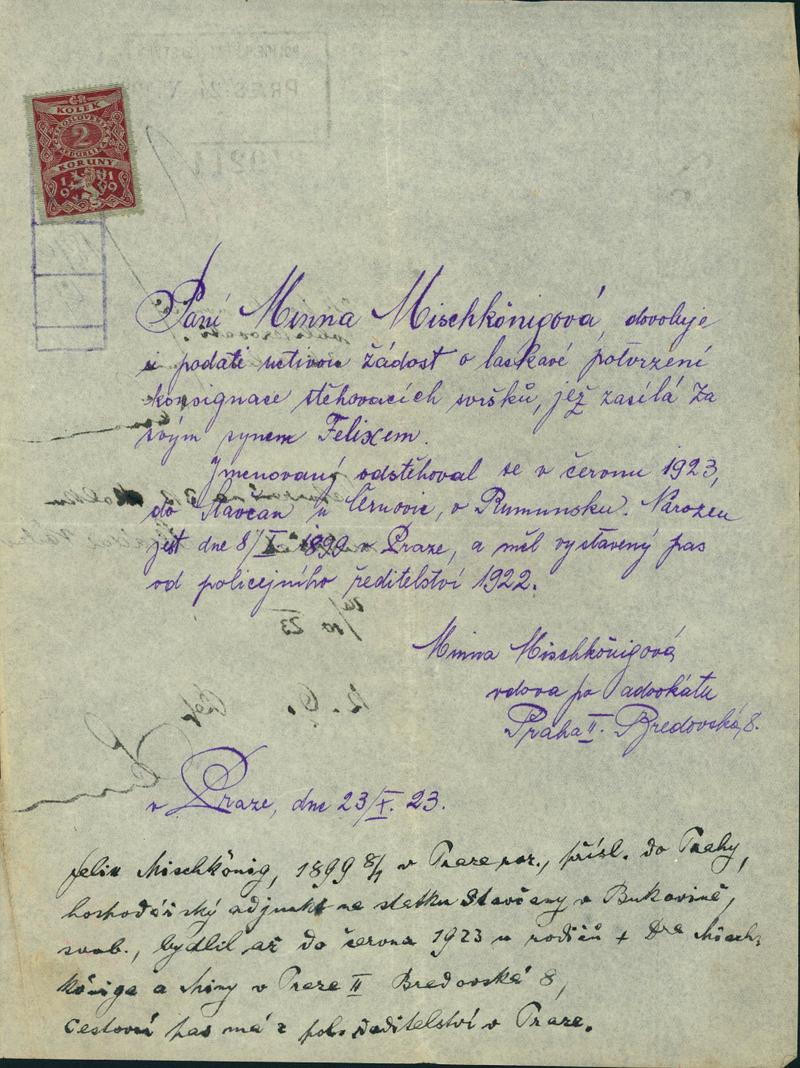 KOLEK
ČESKOSLOVENSKÁ
2
REPUBLIKA
KORUNY
1919
Paní Minna Mischkönigová, dovoluje
si podati uctivou žádost o laskavé potvrzení
konsignace stěhovacích svršků, jež zasílá za
svým synem Felixem.
Jmenovaný odstěhoval se v červnu 1923,
do Stavčan u Černovic, v Rumunsku. Narozen
jest dne 8/I 1899 v Praze, a měl vystavený pas
od policejního ředitelství 1922.
Minna Mischkönigová
vdova po advokátu
Praha II. Bredovská, 8.
v Praze, dne 23/X. 23.
Felix Mischkönig, 1899 8/1 v Praze nar., přísl. do Prahy,
hospodářský adjunkt na statku Stavčany v Bukovině,
svob., bydlil až do června 1923 u rodičů + Dra Misch-
königa a Miny v Praze II Bredovská 8,
Cestovní pas má z pol. ředitelství v Praze.